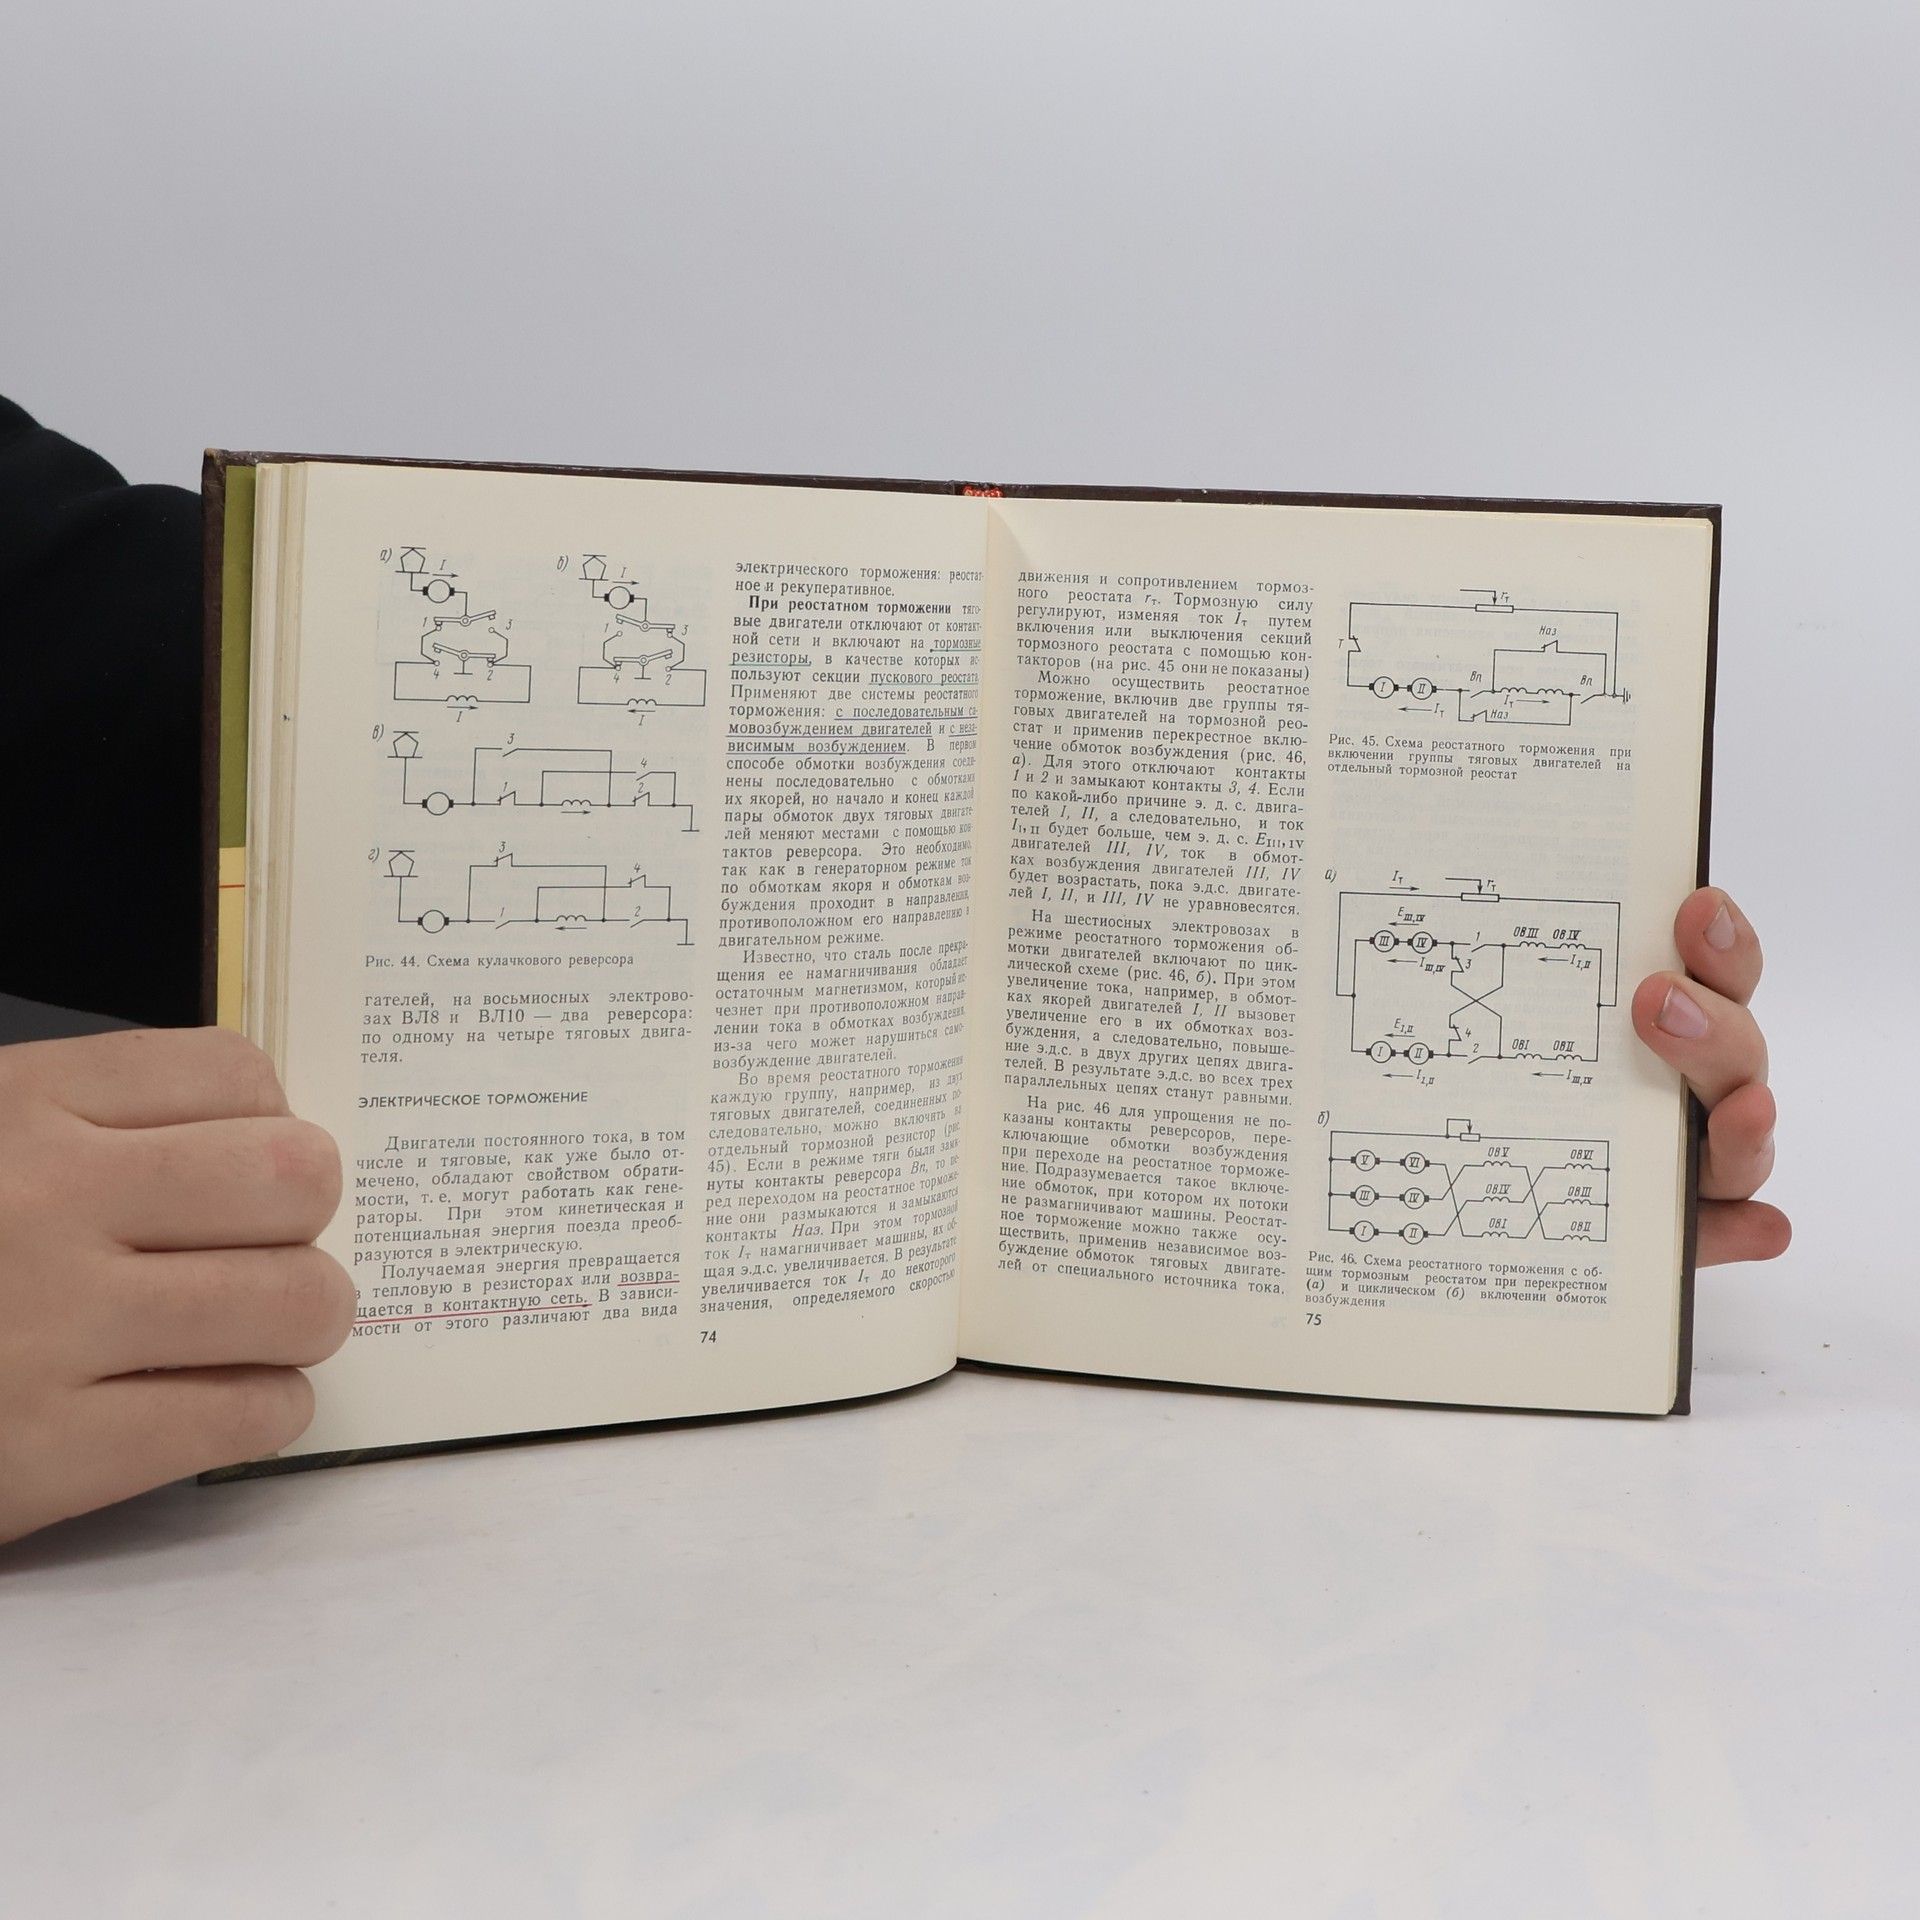 а)
I
1
3
4
2
I
б)
I
1
3
4
2
I
в)
3
4
1
2
г)
3
4
1
2
Рис. 44. Схема кулачкового реверсора
гателей, на восьмиосных электрово-
зах ВЛ8 и ВЛ10 — два реверсора:
по одному на четыре тяговых двига-
теля.
ЭЛЕКТРИЧЕСКОЕ ТОРМОЖЕНИЕ
Двигатели постоянного тока, в том
числе и тяговые, как уже было от-
мечено, обладают свойством обрати-
мости, т. е. могут работать как гене-
раторы. При этом кинетическая и
потенциальная энергия поезда преоб-
разуются в электрическую.
Получаемая энергия превращается
в тепловую в резисторах или возвра-
щается в контактную сеть. В зависи-
мости от этого различают два вида
электрического торможения: реостат-
ное и рекуперативное.
При реостатном торможении тяго-
вые двигатели отключают от контакт-
ной сети и включают на тормозные
резисторы, в качестве которых ис-
пользуют секции пускового реостата.
Применяют две системы реостатного
торможения: с последовательным са-
мовозбуждением двигателей и с неза-
висимым возбуждением. В первом
способе обмотки возбуждения соеди-
нены последовательно с обмотками
их якорей, но начало и конец каждой
пары обмоток двух тяговых двигате-
лей меняют местами с помощью кон-
тактов реверсора. Это необходимо,
так как в генераторном режиме ток
по обмоткам якоря и обмоткам воз-
буждения проходит в направлении,
противоположном его направлению в
двигательном режиме.
Известно, что сталь после прекра-
щения ее намагничивания обладает
остаточным магнетизмом, который ис-
чезнет при противоположном направ-
лении тока в обмотках возбуждения,
из-за чего может нарушиться само-
возбуждение двигателей.
Во время реостатного торможения
каждую группу, например, из двух
тяговых двигателей, соединенных по-
следовательно, можно включить на
отдельный тормозной резистор (рис.
45). Если в режиме тяги были замк-
нуты контакты реверсора Вп, то пе-
ред переходом на реостатное торможе-
ние они размыкаются и замыкаются
контакты Наз. При этом тормозной
ток Iт намагничивает машины, их об-
щая э.д.с. увеличивается. В результате
увеличивается ток Iт до некоторого
значения, определяемого скоростью
74
движения и сопротивлением тормоз-
ного реостата rт. Тормозную силу
регулируют, изменяя ток Iт путем
включения или выключения секций
тормозного реостата с помощью кон-
такторов (на рис. 45 они не показаны)
Можно осуществить реостатное
торможение, включив две группы тя-
говых двигателей на тормозной рео-
стат и применив перекрестное вклю-
чение обмоток возбуждения (рис. 46,
а). Для этого отключают контакты
1 и 2 и замыкают контакты 3, 4. Если
по какой-либо причине э. д. с. двига-
телей I, II, а следовательно, и ток
II, II будет больше, чем э. д. с. EIII, IV
двигателей III, IV, ток в обмот-
ках возбуждения двигателей III, IV
будет возрастать, пока э.д.с. двигате-
лей I, II, и III, IV не уравновесятся.
На шестиосных электровозах в
режиме реостатного торможения об-
мотки двигателей включают по цик-
лической схеме (рис. 46, б). При этом
увеличение тока, например, в обмот-
ках якорей двигателей I, II вызовет
увеличение его в их обмотках воз-
буждения, а следовательно, повыше-
ние э.д.с. в двух других цепях двига-
телей. В результате э.д.с. во всех трех
параллельных цепях станут равными.
На рис. 46 для упрощения не по-
казаны контакты реверсоров, пере-
ключающие обмотки возбуждения
при переходе на реостатное торможе-
ние. Подразумевается такое включе-
ние обмоток, при котором их потоки
не размагничивают машины. Реостат-
ное торможение можно также осу-
ществить, применив независимое воз-
буждение обмоток тяговых двигате-
лей от специального источника тока.
rт
Наз
Т
I II Вп Iт Вп
Iт
Наз
Рис. 45. Схема реостатного торможения при
включении группы тяговых двигателей на
отдельный тормозной реостат
а)
Iт rт
EIII,IV
III IV 1 ОВIII ОВIV
IIII,IV 3 II,II
EI,II 4
I II 2 ОВI ОВII
II,II IIII,IV
б)
V VI ОВV ОВVI
III IV ОВIV ОВIII
I II ОВI ОВII
Рис. 46. Схема реостатного торможения с об-
щим тормозным реостатом при перекрестном
(а) и циклическом (б) включении обмоток
возбуждения
75